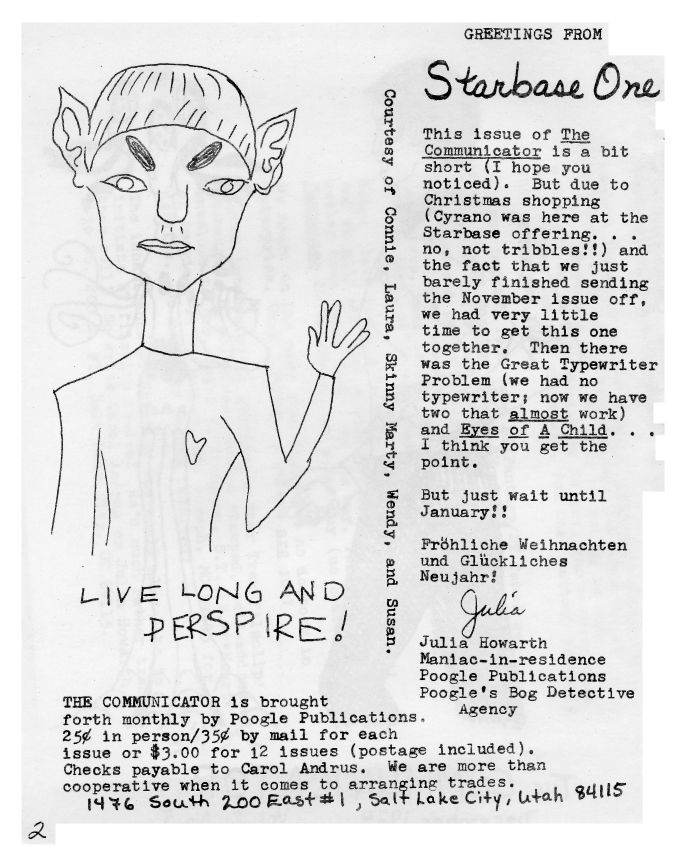 GREETINGS FROM
Starbase One
This issue of The
Communicator is a bit
short (I hope you
noticed). But due to
Christmas shopping
(Cyrano was here at the
Starbase offering. . .
no, not tribbles!!) and
the fact that we just
barely finished sending
the November issue off,
we had very little
time to get this one
together. Then there
was the Great Typewriter
Problem (we had no
typewriter; now we have
two that almost work)
and Eyes of A Child. . .
I think you get the
point.
But just wait until
January!!
Fröhliche Weihnachten
und Glückliches
Neujahr!
Julia
Julia Howarth
Maniac-in-residence
Poogle Publications
Poogle's Bog Detective
Agency
Courtesy of Connie, Laura, Skinny Marty, Wendy, and Susan.
LIVE LONG AND
PERSPIRE!
THE COMMUNICATOR is brought
forth monthly by Poogle Publications.
25¢ in person/35¢ by mail for each
issue or $3.00 for 12 issues (postage included).
Checks payable to Carol Andrus. We are more than
cooperative when it comes to arranging trades.
1476 South 200 East #1, Salt Lake City, Utah 84115
2